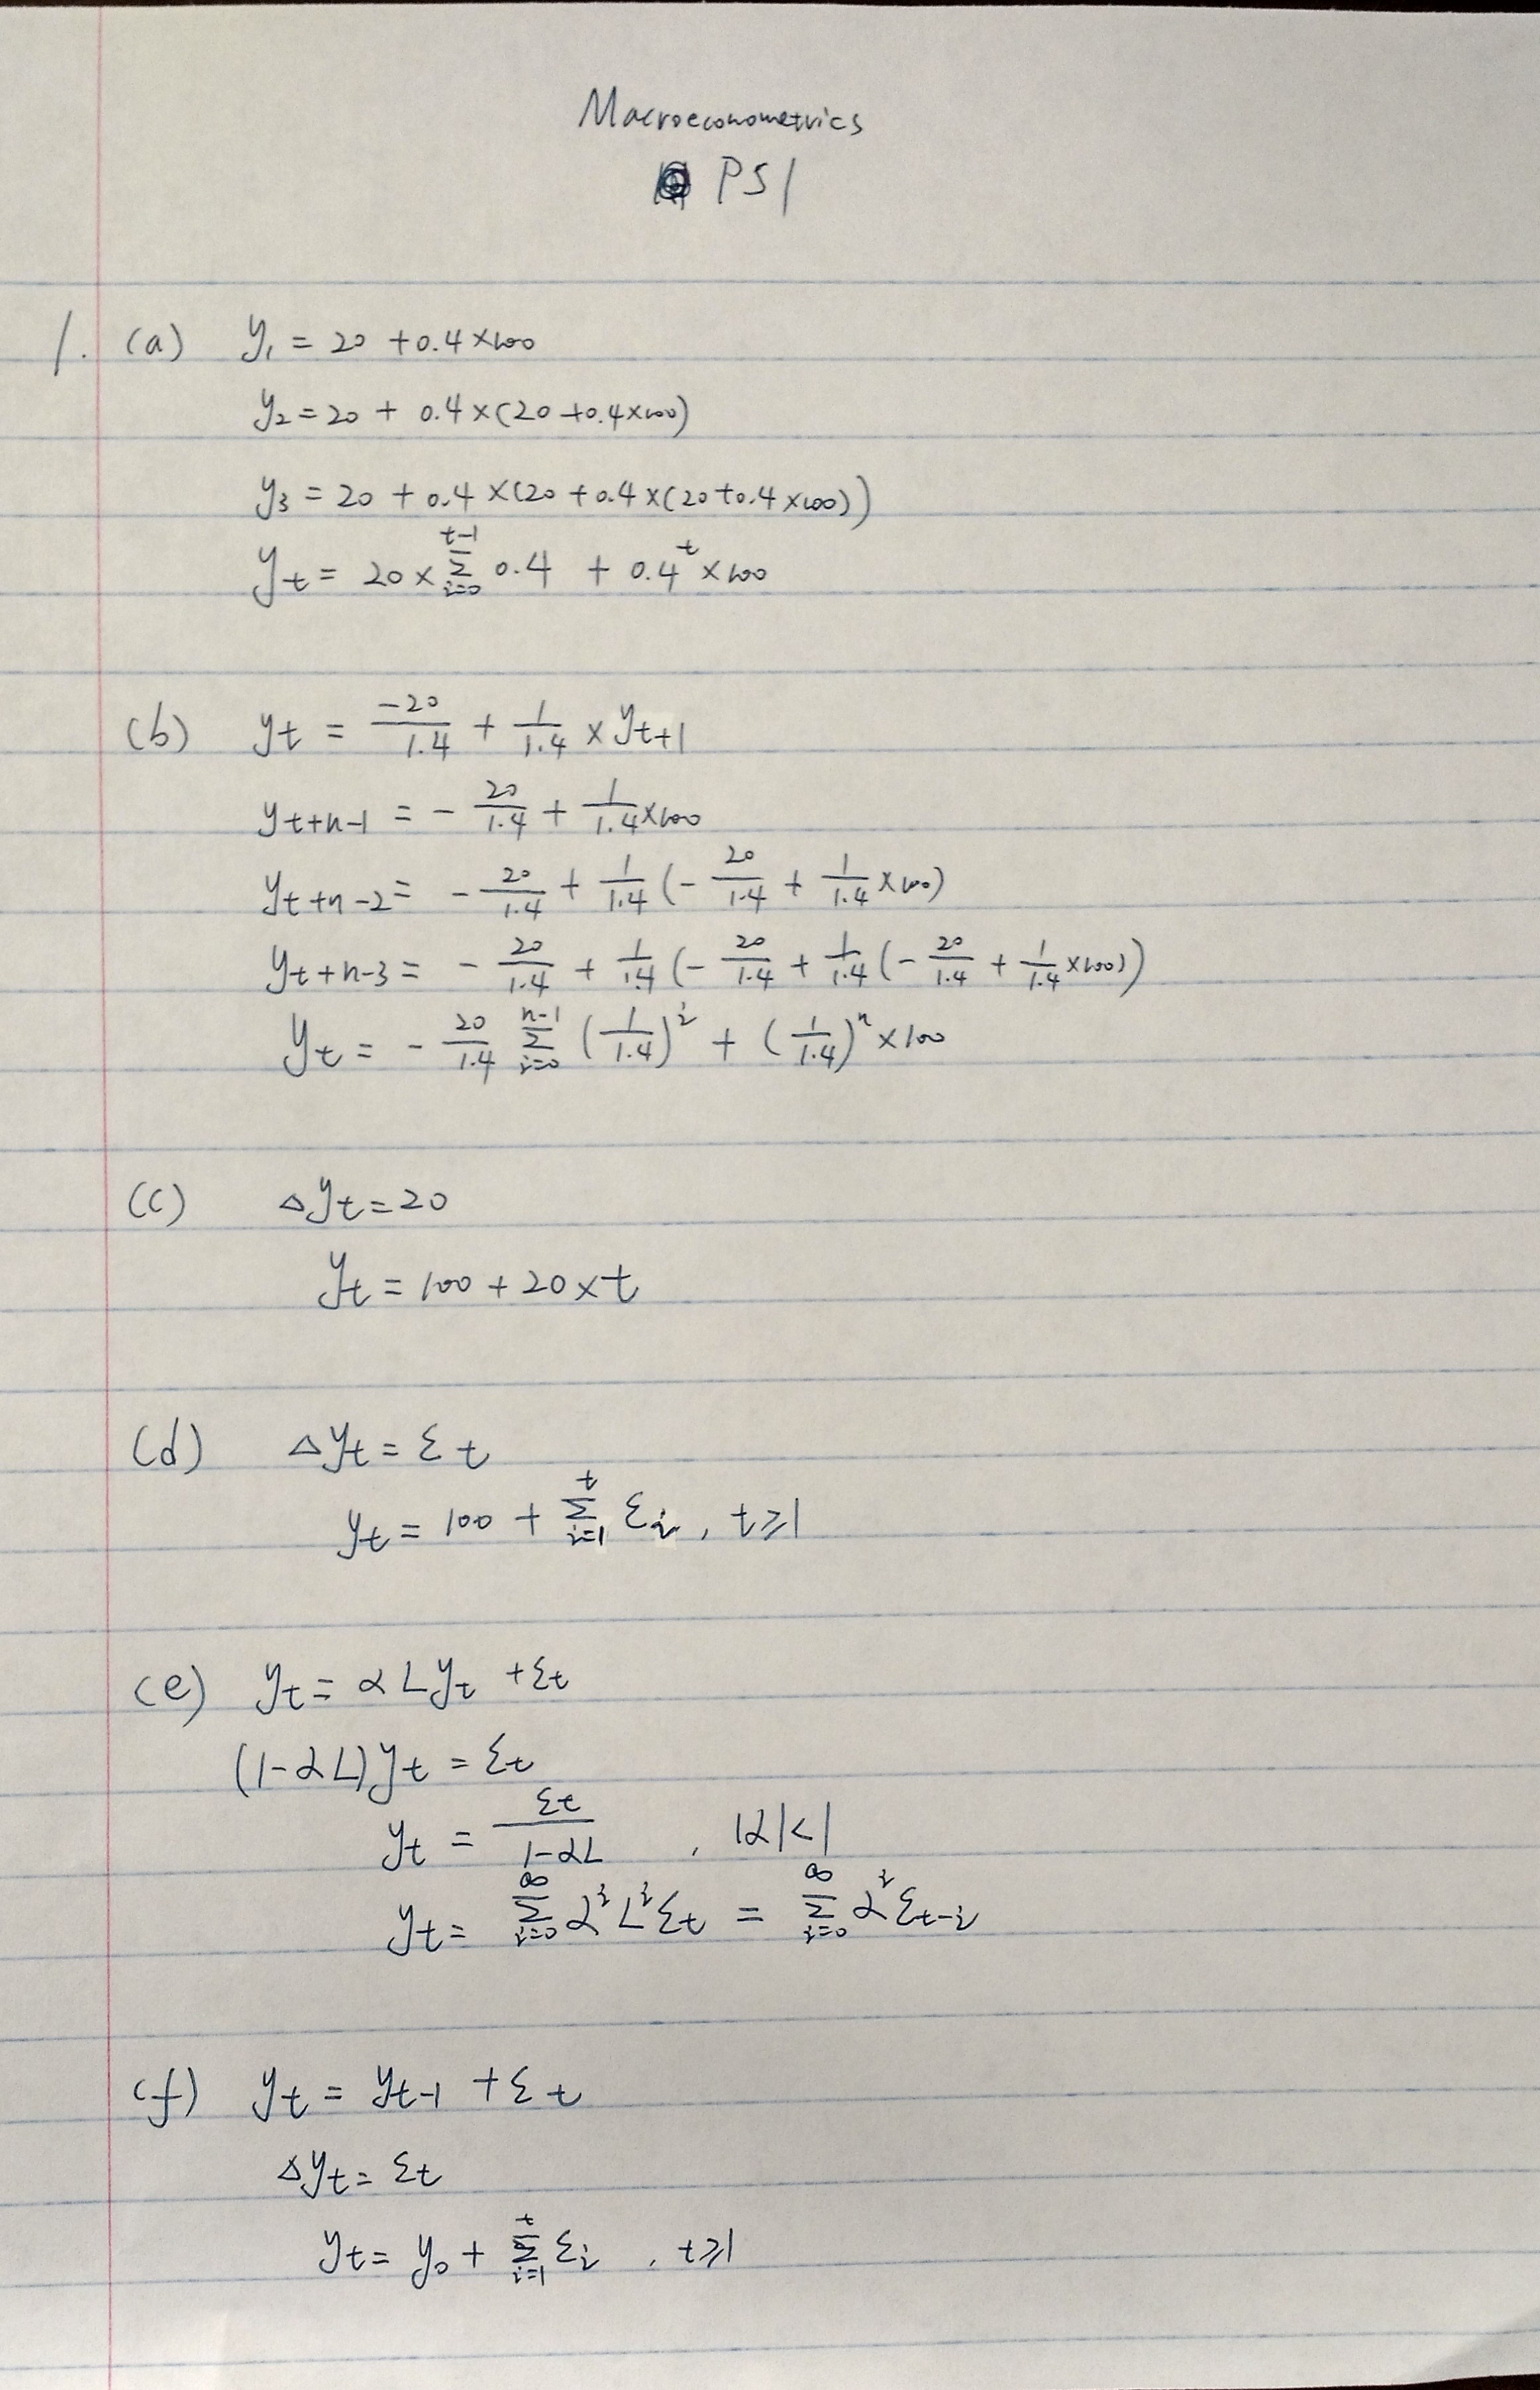 Macroeconometrics
PS1
1. (a) y₁ = 20 + 0.4 × 100
y₂ = 20 + 0.4 × (20 + 0.4 × 100)
y₃ = 20 + 0.4 × (20 + 0.4 × (20 + 0.4 × 100))
y_t = 20 × \sum_{i=0}^{t-1} 0.4 + 0.4^t × 100
(b) y_t = \frac{-20}{1.4} + \frac{1}{1.4} × y_{t+1}
y_{t+n-1} = -\frac{20}{1.4} + \frac{1}{1.4} × 100
y_{t+n-2} = -\frac{20}{1.4} + \frac{1}{1.4} (-\frac{20}{1.4} + \frac{1}{1.4} × 100)
y_{t+n-3} = -\frac{20}{1.4} + \frac{1}{1.4} (-\frac{20}{1.4} + \frac{1}{1.4} (-\frac{20}{1.4} + \frac{1}{1.4} × 100))
y_t = -\frac{20}{1.4} \sum_{i=0}^{n-1} (\frac{1}{1.4})^i + (\frac{1}{1.4})^n × 100
(c) Δy_t = 20
y_t = 100 + 20 × t
(d) Δy_t = ε_t
y_t = 100 + \sum_{i=1}^{t} ε_i, t ≥ 1
(e) y_t = αLy_t + ε_t
(1-αL)y_t = ε_t
y_t = \frac{ε_t}{1-αL}, |α|<1
y_t = \sum_{i=0}^{∞} α^i L^i ε_t = \sum_{i=0}^{∞} α^i ε_{t-i}
(f) y_t = y_{t-1} + ε_t
Δy_t = ε_t
y_t = y_0 + \sum_{i=1}^{t} ε_i, t ≥ 1